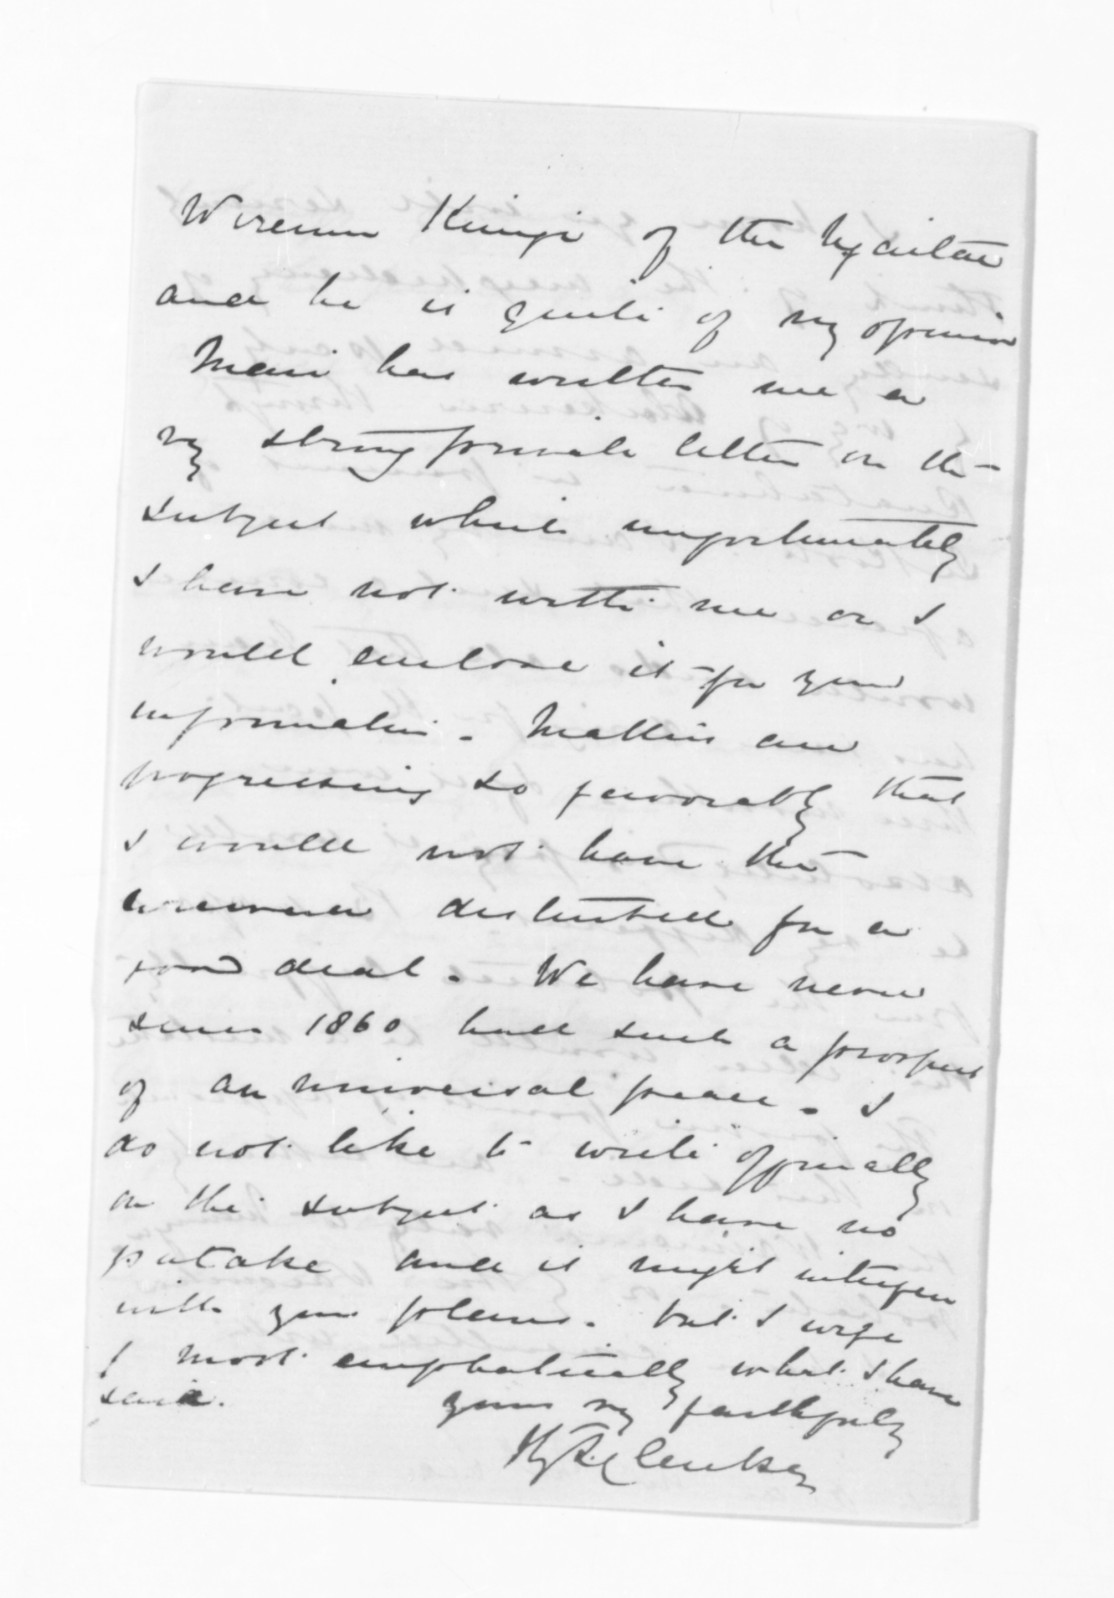 Wiremu Kingi of the Ngaitai
and he is quite of my opinion
Mair has written me a
vy strong private letter on the
subject which unfortunately
I have not with me or I
would enclose it for your
information. Matters are
progressing so favorably that
I would not have the
disturbed for a
good deal. We have never
since 1860 had such a prospect
of an universal peace. I
do not like to write officially
on the subject as I have no
putake and it might interfere
with your plans. but I
most emphatically what I have
said.
yours vy faithfully
Hy T. Clarke